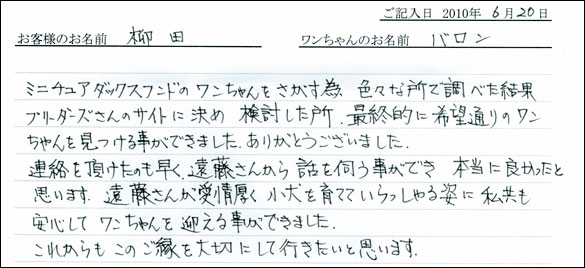 ご記入日 2010年 6月 20日
お客様のお名前 柳田 ワンちゃんのお名前 バロン
ミニチュアダックスフンドの ワンちゃんをさがす為 色々な所で調べた結果
ブリーダーズさんのサイトに決め 検討した所、最終的に希望通りのワン
ちゃんを見つける事ができました。ありがとうございました。
連絡を頂けたのも早く、遠藤さんから 話を伺う事ができ 本当に良かったと
思います。遠藤さんが愛情厚く 小犬を育てていらっしゃる姿に 私共も
安心して ワンちゃんを迎える事ができました。
これからも このご縁を大切にして行きたいと思います。